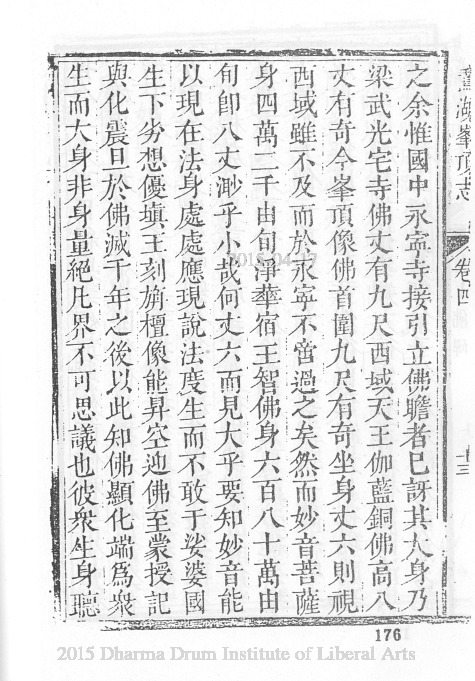 鵞湖峯頂志 卷四 十三
之余惟國中永寧寺接引立佛瞻者已訝其大身乃
梁武光宅寺佛丈有九尺西域天王伽藍銅佛高八
丈有奇今峯頂像佛首圍九尺有奇坐身丈六則視
西域雖不及而於永寧不啻過之矣然而妙音菩薩
身四萬二千由旬淨華宿王智佛身六百八十萬由
旬卽八丈渺乎小哉何丈六而見大乎要知妙音能
以現在法身處處應現說法度生而不敢于娑婆國
生下劣想優塡王刻旃檀像能昇空迎佛至蒙授記
與化震旦於佛滅千年之後以此知佛顯化端爲衆
生而大身非身量絕凡界不可思議也彼衆生身聽
176
2015 Dharma Drum Institute of Liberal Arts